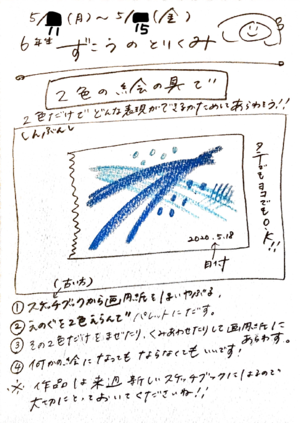 5/11(月)～5/15(金)
6年生 ずこうのとりくみ
2色の絵の具で
2色だけでどんな表現ができるかためしてあらわそう!!
しんぶんし
タテでもヨコでもOK!!
2020.5.18
日付
(古い方)
①スケッチブックから画用紙を1まいやぶる。
②えのぐを2色えらんでパレットにだす。
③その2色だけをまぜたり、くみあわせたりして画用紙にあらわす。
④何かの絵になってもならなくてもいいです!
※作品は来週新しいスケッチブックにはるので
大切にとっておいてくださいね!!